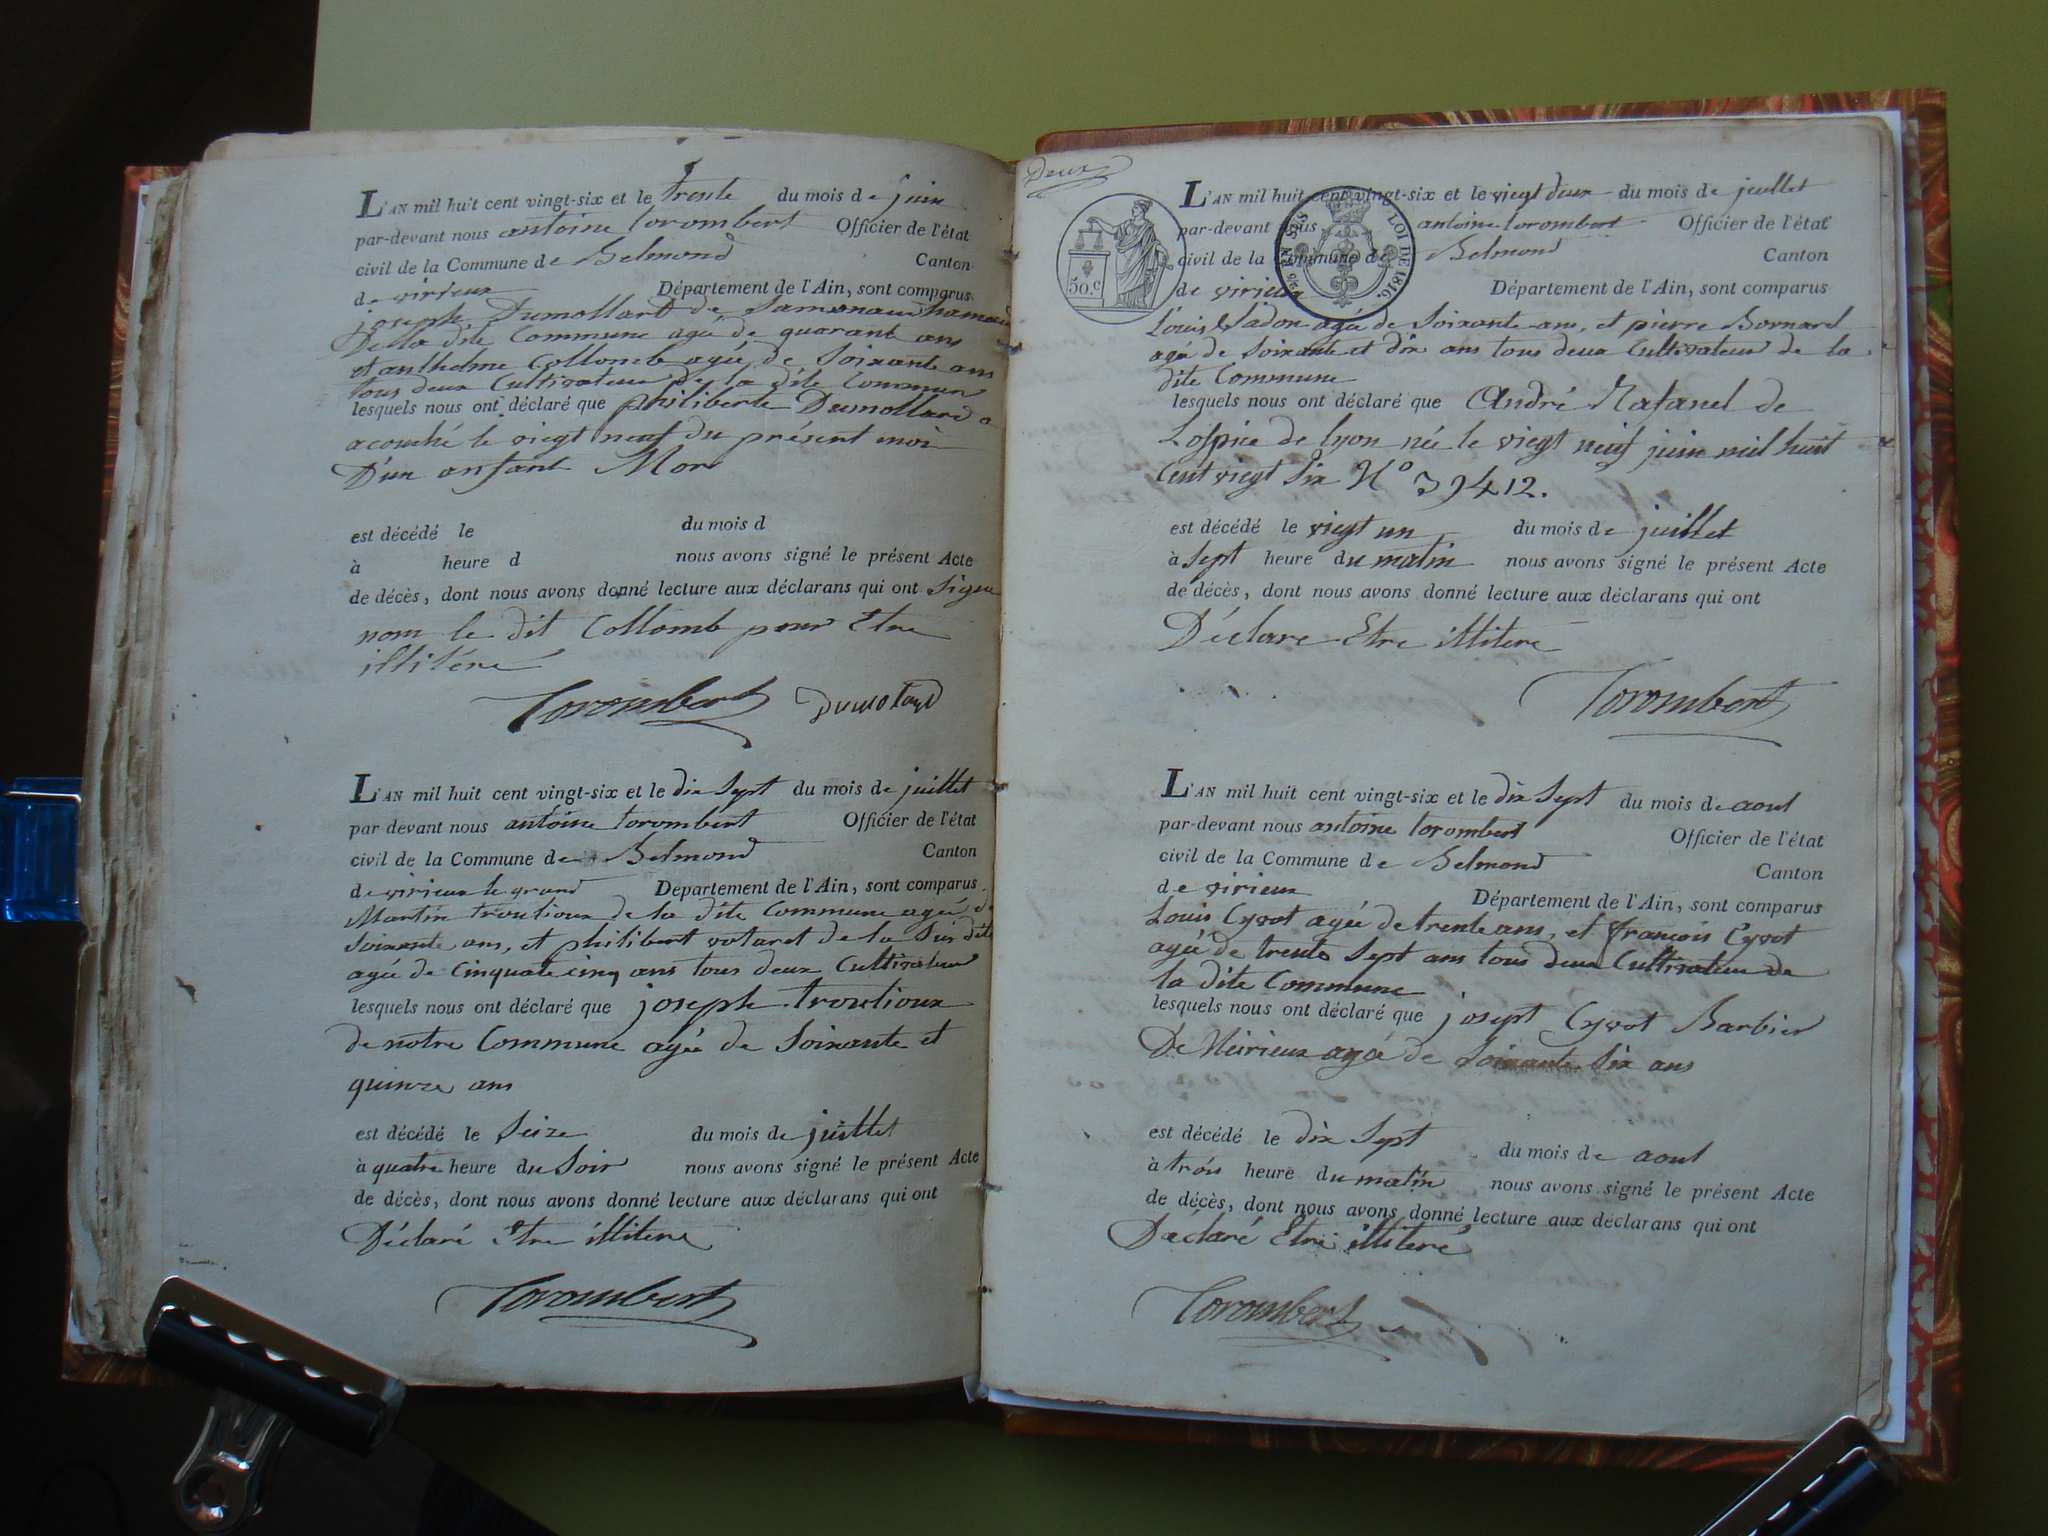 L'AN mil huit cent vingt-six et le trente du mois de juin
par-devant nous antoine torombert Officier de l'état
civil de la Commune de Belmond Canton
de virieux Département de l'Ain, sont comparus
joseph Dumollard de
Della dite Commune agée de quarante ans
et anthelme Collomb agée de Soixante ans
tous deux Cultivateur de la dite Commune
lesquels nous ont déclaré que philiberte Dumollard a
acouché le viegt neuf du présent moi
D'un anfant Mor
est décédé le du mois d
à heure d nous avons signé le présent Acte
de décès, dont nous avons donné lecture aux déclarans qui ont signe
nom le dit Collomb pour Etre
illitéré
Torombert Dumolard
L'AN mil huit cent vingt-six et le dix Sept du mois de juillet
par-devant nous antoine torombert Officier de l'état
civil de la Commune de Belmond Canton
de virieux le grand Département de l'Ain, sont comparus
Martin troutioux de la dite Commune agée de
soixante ans, et philibert votaret de la Sus dite
agée de Cinquate cinq ans tous deux Cultivateur
lesquels nous ont déclaré que joseph troutioux
de notre Commune agée de Soixante et
quinze ans
est décédé le Seize du mois de juillet
à quatre heure du Soir nous avons signé le présent Acte
de décès, dont nous avons donné lecture aux déclarans qui ont
Déclaré Etre illitere
Torombert
Deux
50.c
LOI DE 1816.
L'AN mil huit cent vingt-six et le viegt deux du mois de juillet
par-devant nous antoine torombert Officier de l'état
civil de la Commune de Belmond Canton
de virieux Département de l'Ain, sont comparus
Louis Sadon agée de Soixante ans, et pierre Bornard
agée de Soixante et dix ans tous deux Cultivateur de la
dite Commune
lesquels nous ont déclaré que André Rafanel de
Lospice de lyon née le viegt neuf juin mil huit
Cent viegt Six N° 39412.
est décédé le viegt un du mois de juillet
à Sept heure du matin nous avons signé le présent Acte
de décès, dont nous avons donné lecture aux déclarans qui ont
Déclare Etre illitere
Torombert
L'AN mil huit cent vingt-six et le dix Sept du mois de aout
par-devant nous antoine torombert Officier de l'état
civil de la Commune de Belmond Canton
de virieux Département de l'Ain, sont comparus
Louis Cyvot agée de trente ans, et françois Cyvot
agée de trente Sept ans tous deux Cultivateur de
la dite Commune
lesquels nous ont déclaré que josept Cyvot Barbier
De agée de Soixante Six ans
est décédé le dix Sept du mois de aout
à trois heure du matin nous avons signé le présent Acte
de décès, dont nous avons donné lecture aux déclarans qui ont
Déclaré Etre illiteré
Torombert